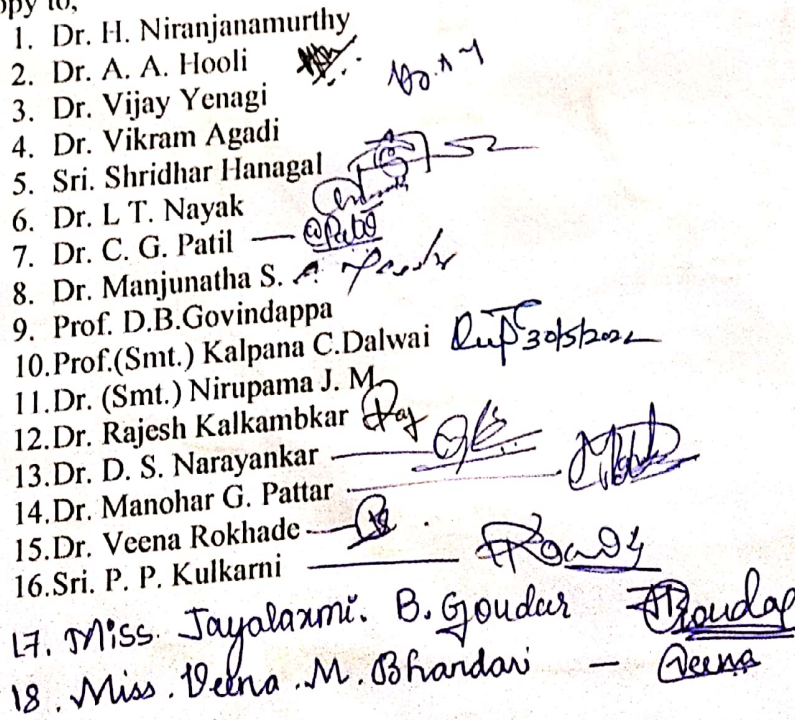 opy to,
1. Dr. H. Niranjanamurthy
2. Dr. A. A. Hooli
3. Dr. Vijay Yenagi
4. Dr. Vikram Agadi
5. Sri. Shridhar Hanagal
6. Dr. L T. Nayak
7. Dr. C. G. Patil
8. Dr. Manjunatha S.
9. Prof. D.B.Govindappa
10.Prof.(Smt.) Kalpana C.Dalwai 30/5/2022
11.Dr. (Smt.) Nirupama J. M.
12.Dr. Rajesh Kalkambkar
13.Dr. D. S. Narayankar
14.Dr. Manohar G. Pattar
15.Dr. Veena Rokhade
16.Sri. P. P. Kulkarni
17. Miss. Jayalaxmi. B. Goudar
18. Miss. Veena .M. Bhandari — Veena